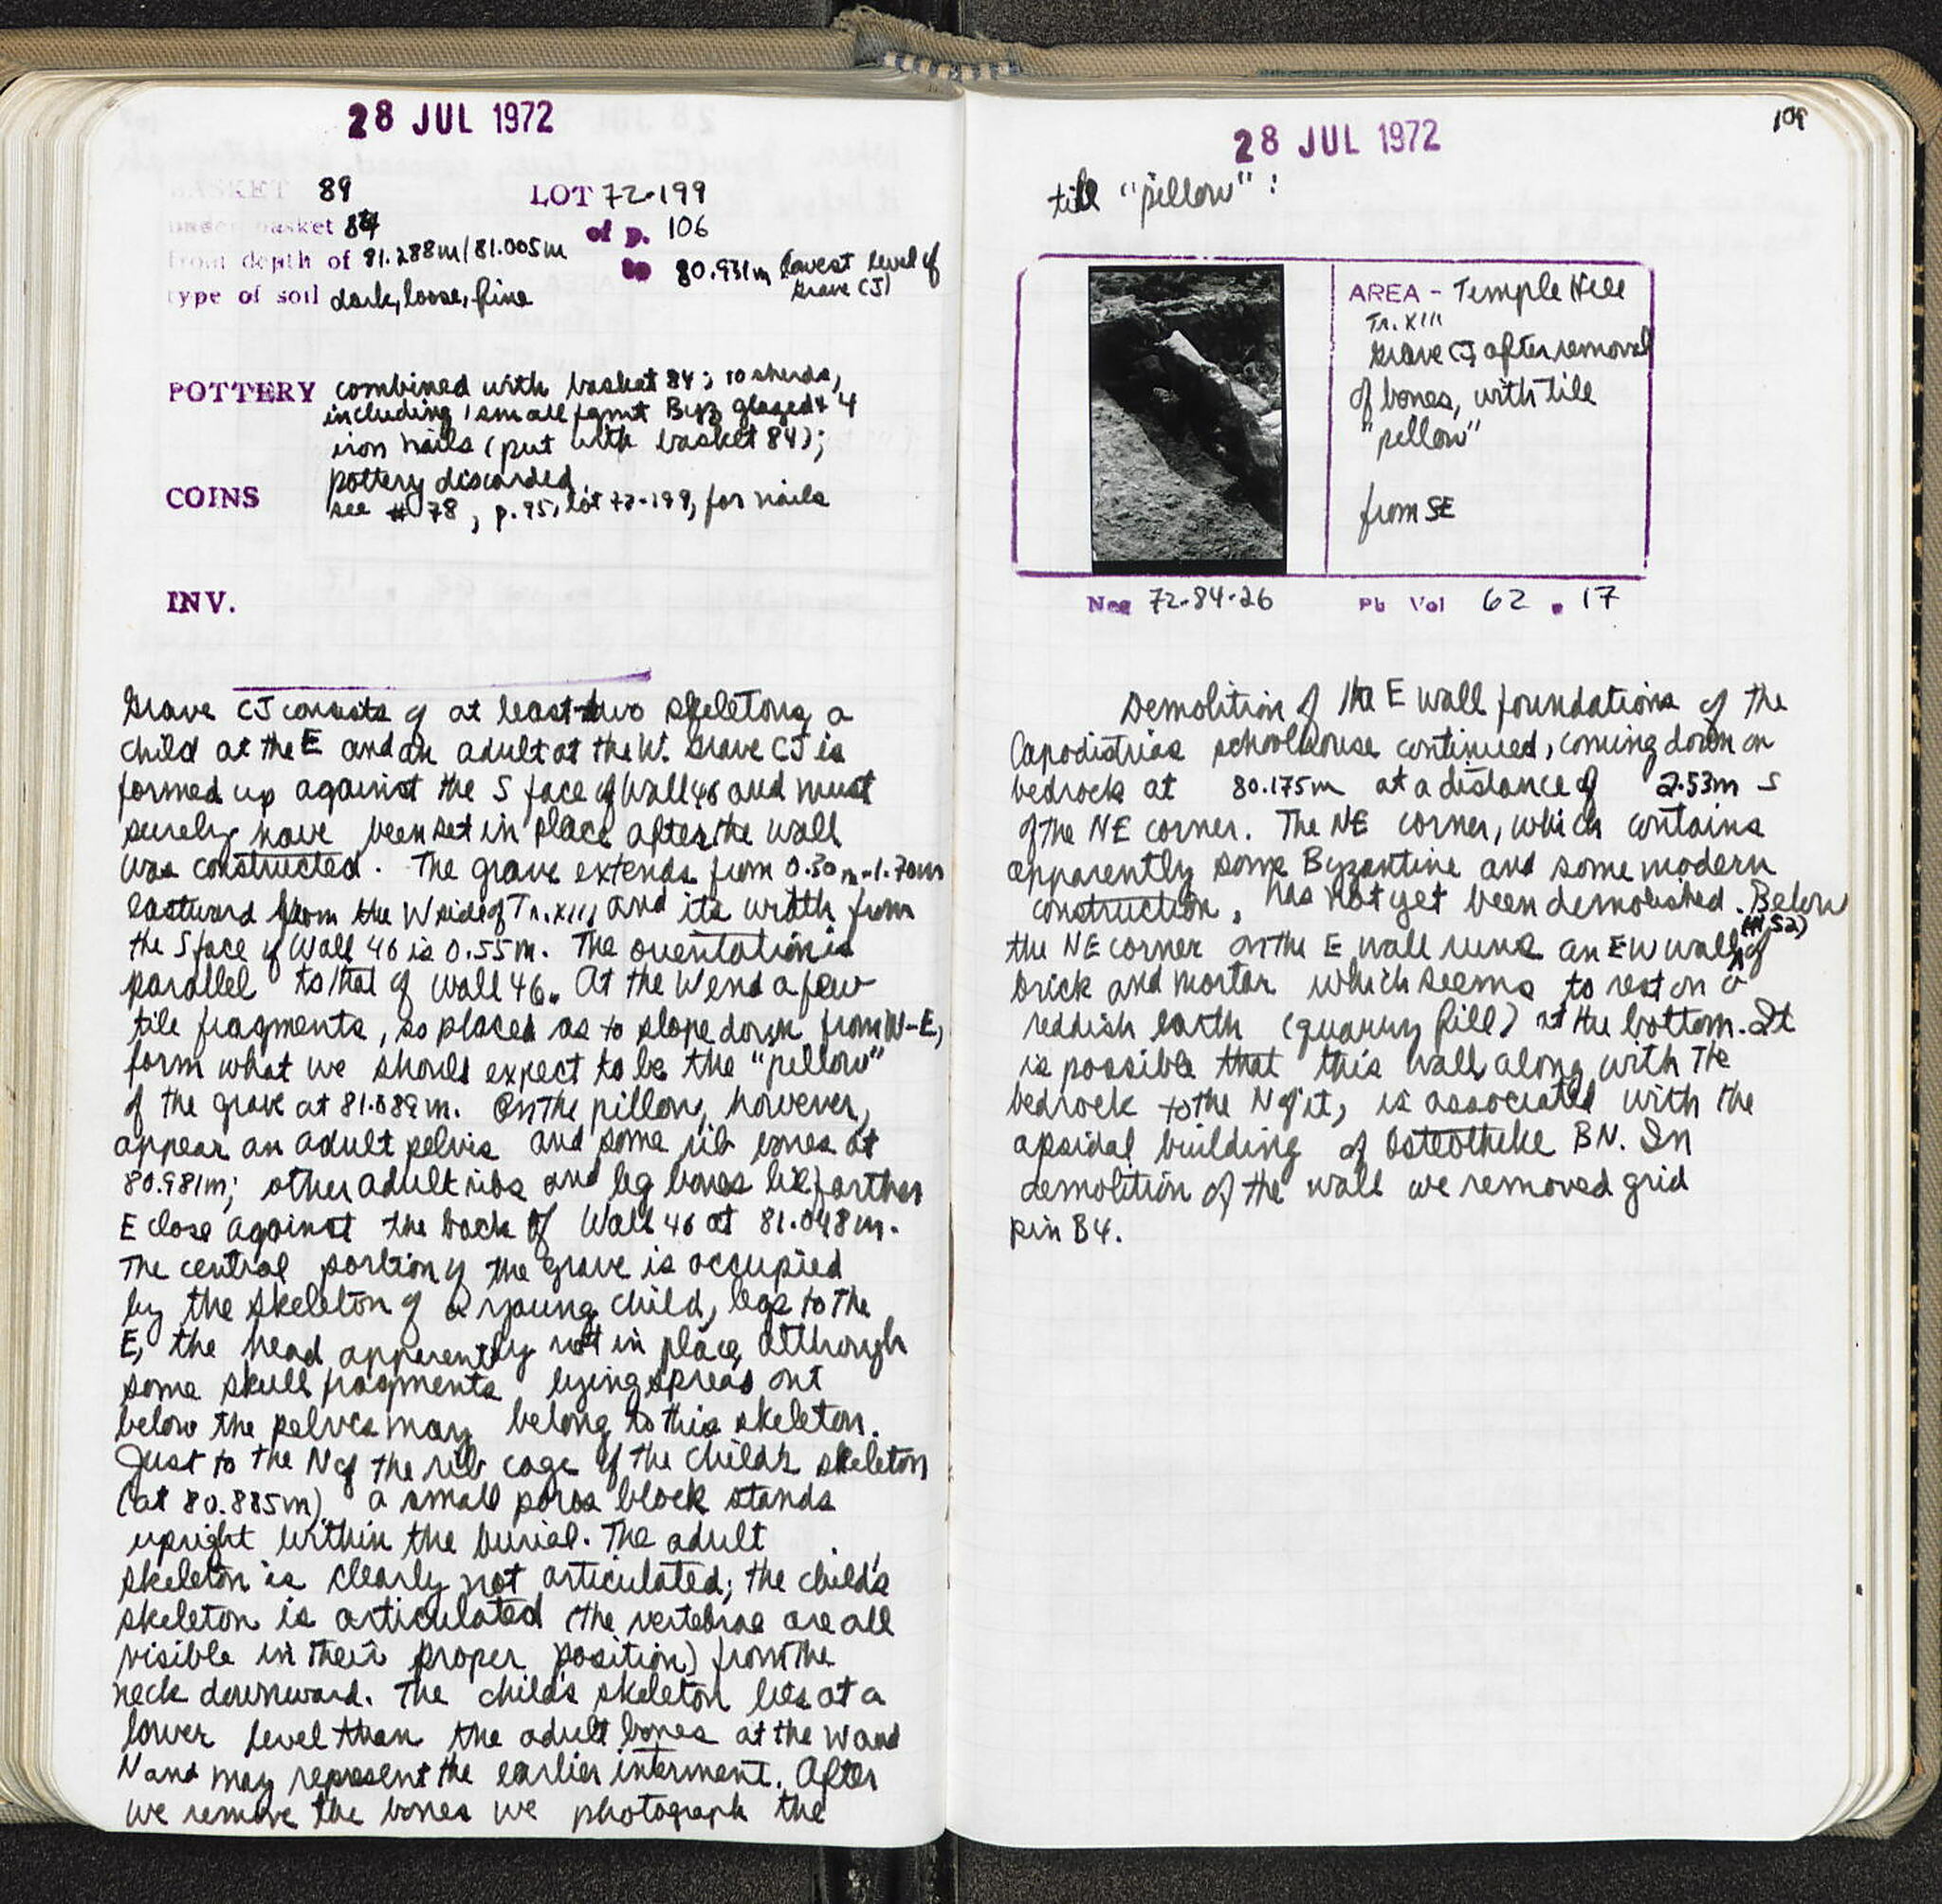 28 JUL 1972
BASKET 89 LOT 72-199
under basket 84 of p. 106
from depth of 81.288m/81.005m to 80.931m lowest level of
grave CJ)
type of soil dark, loose, fine
POTTERY combined with basket 84; 10 sherds,
including 1 small fgmt Byz glazed + 4
iron nails (put with basket 84);
pottery discarded.
COINS see # 78, p. 95, lot 72-199, for nails
INV.
Grave CJ consists of at least two skeletons, a
child at the E and an adult at the W. Grave CJ is
formed up against the S face of Wall 46 and must
surely have been set in place after the wall
was constructed. The grave extends from 0.30m-1.70m
eastward from the W side of Tr. XIII, and its width from
the S face of Wall 46 is 0.55m. The orientation is
parallel to that of Wall 46. At the W end a few
tile fragments, so placed as to slope down from W-E,
form what we should expect to be the "pillow"
of the grave at 81.089m. On the pillow, however,
appear an adult pelvis and some rib bones at
80.981m; other adult ribs and leg bones lie farther
E close against the back of Wall 46 at 81.048m.
The central portion of the grave is occupied
by the skeleton of a young child, legs to the
E, the head apparently not in place, although
some skull fragments lying spread out
below the pelves may belong to this skeleton.
Just to the N of the rib cage of the child's skeleton
(at 80.885m) a small poros block stands
upright within the burial. The adult
skeleton is clearly not articulated; the child's
skeleton is articulated (the vertebrae are all
visible in their proper position) from the
neck downward. The child's skeleton lies at a
lower level than the adult bones at the W and
N and may represent the earlier interment. After
we remove the bones we photograph the
28 JUL 1972
109
tile "pillow":
AREA - Temple Hill
Tr. XIII
Grave CJ after removal
of bones, with tile
"pillow"
from SE
Neg 72-84-26 Pb Vol 62 . 17
Demolition of the E wall foundations of the
Capodistrias schoolhouse continued, coming down on
bedrock at 80.175m at a distance of 2.53m S
of the NE corner. The NE corner, which contains
apparently some Byzantine and some modern
construction, has not yet been demolished. Below
the NE corner on the E wall runs an EW wall (W 52) of
brick and mortar which seems to rest on a
reddish earth (quarry fill) at the bottom. It
is possible that this wall, along with the
bedrock to the N of it, is associated with the
apsidal building of Osteotheke BN. In
demolition of the wall we removed grid
pin B4.